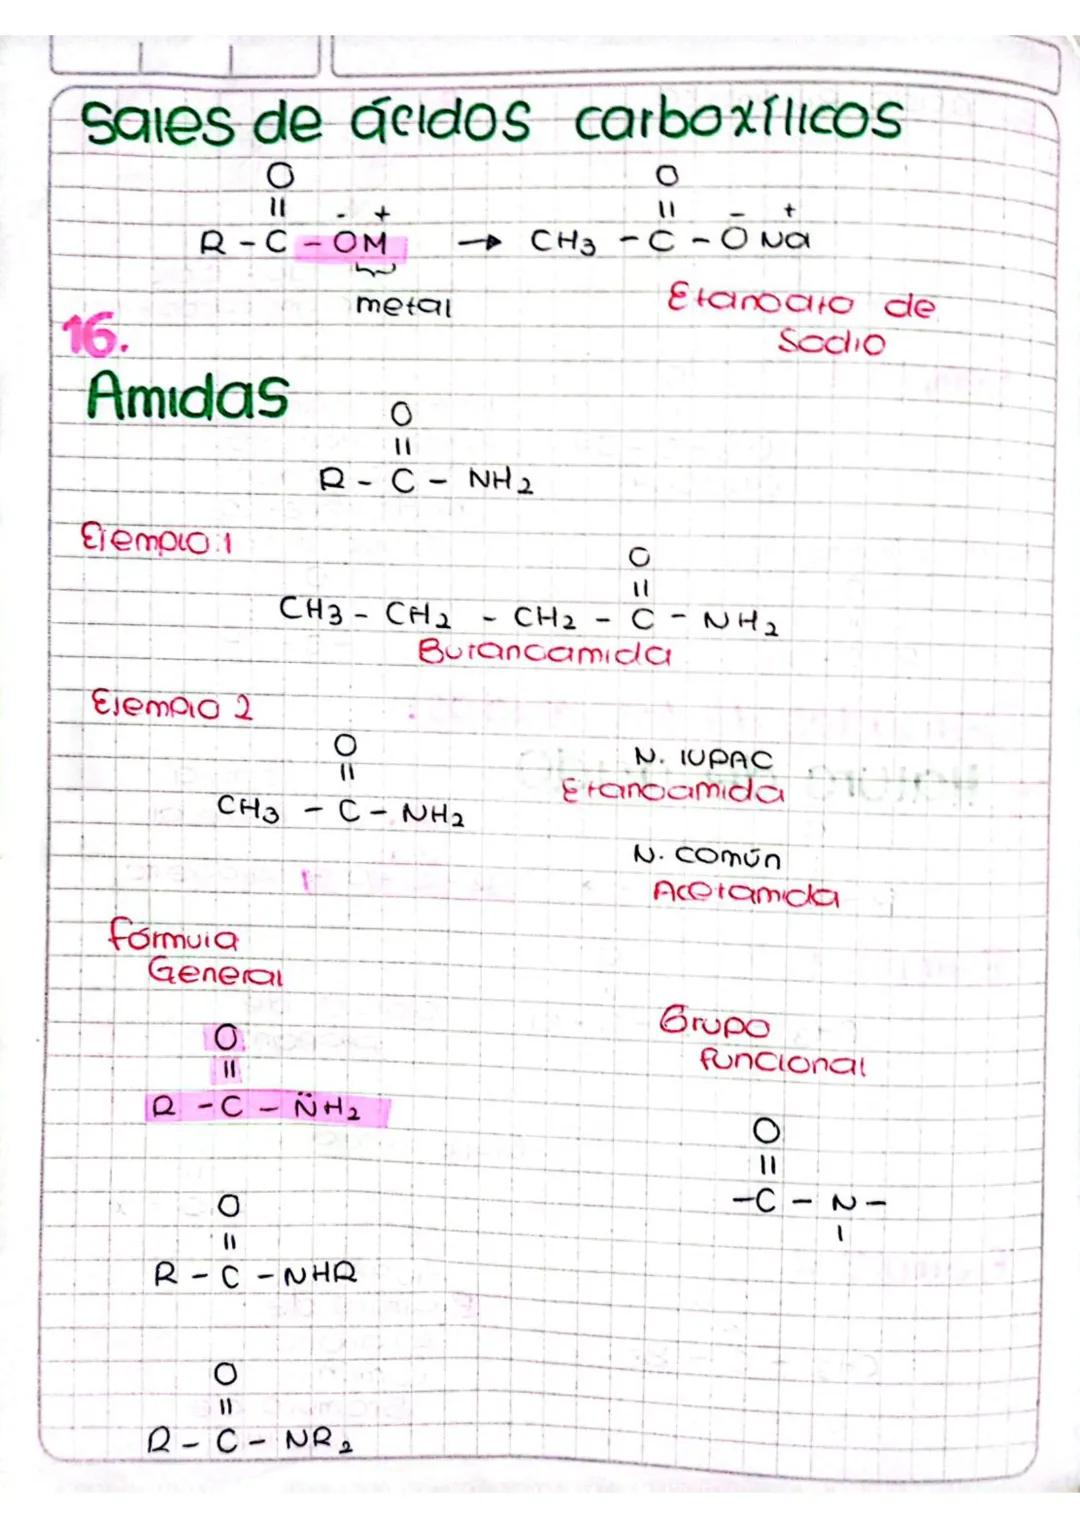 Sales de ácidos carboxílicos
O
||
- +
R - C - OM → CH3 - C - O Na
O
||
- +
metal
Etanoato de
Sodio
16.
Amidas
O
||
R - C - NH2
Ejemplo:1
O
||
CH3 - CH2 - CH2 - C - NH2
Butanoamida
Ejemplo 2
O
||
CH3 - C - NH2
N. IUPAC
Etanoamida
N. común
Acetamida
fórmula
General
O
||
R - C - N̈H2
Grupo
funcional
O
||
-C - N -
|
O
||
R - C - NHR
O
||
R - C - NR2